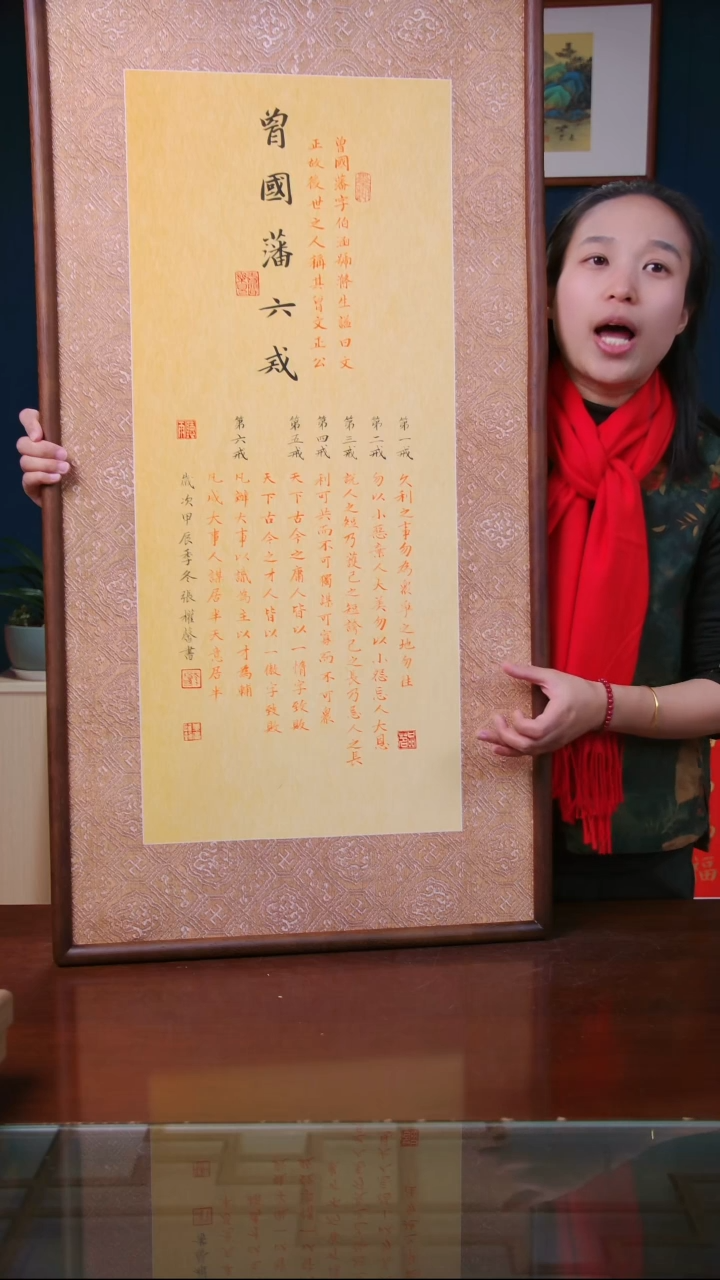 曾國藩六戒
曾國藩字伯涵號滌生諡曰文
正故後世之人稱其曾文正公
第一戒 久利之事勿為眾爭之地勿往
第二戒 勿以小惡棄人大美勿以小怨忘人大恩
第三戒 說人之短乃護己之短誇己之長乃忌人之長
第四戒 利可共而不可獨謀可寡而不可眾
第五戒 天下古今之庸人皆以一惰字致敗
天下古今之才人皆以一傲字致敗
第六戒 凡辦大事以識為主以才為輔
凡成大事人謀居半天意居半
歲次甲辰季冬張書